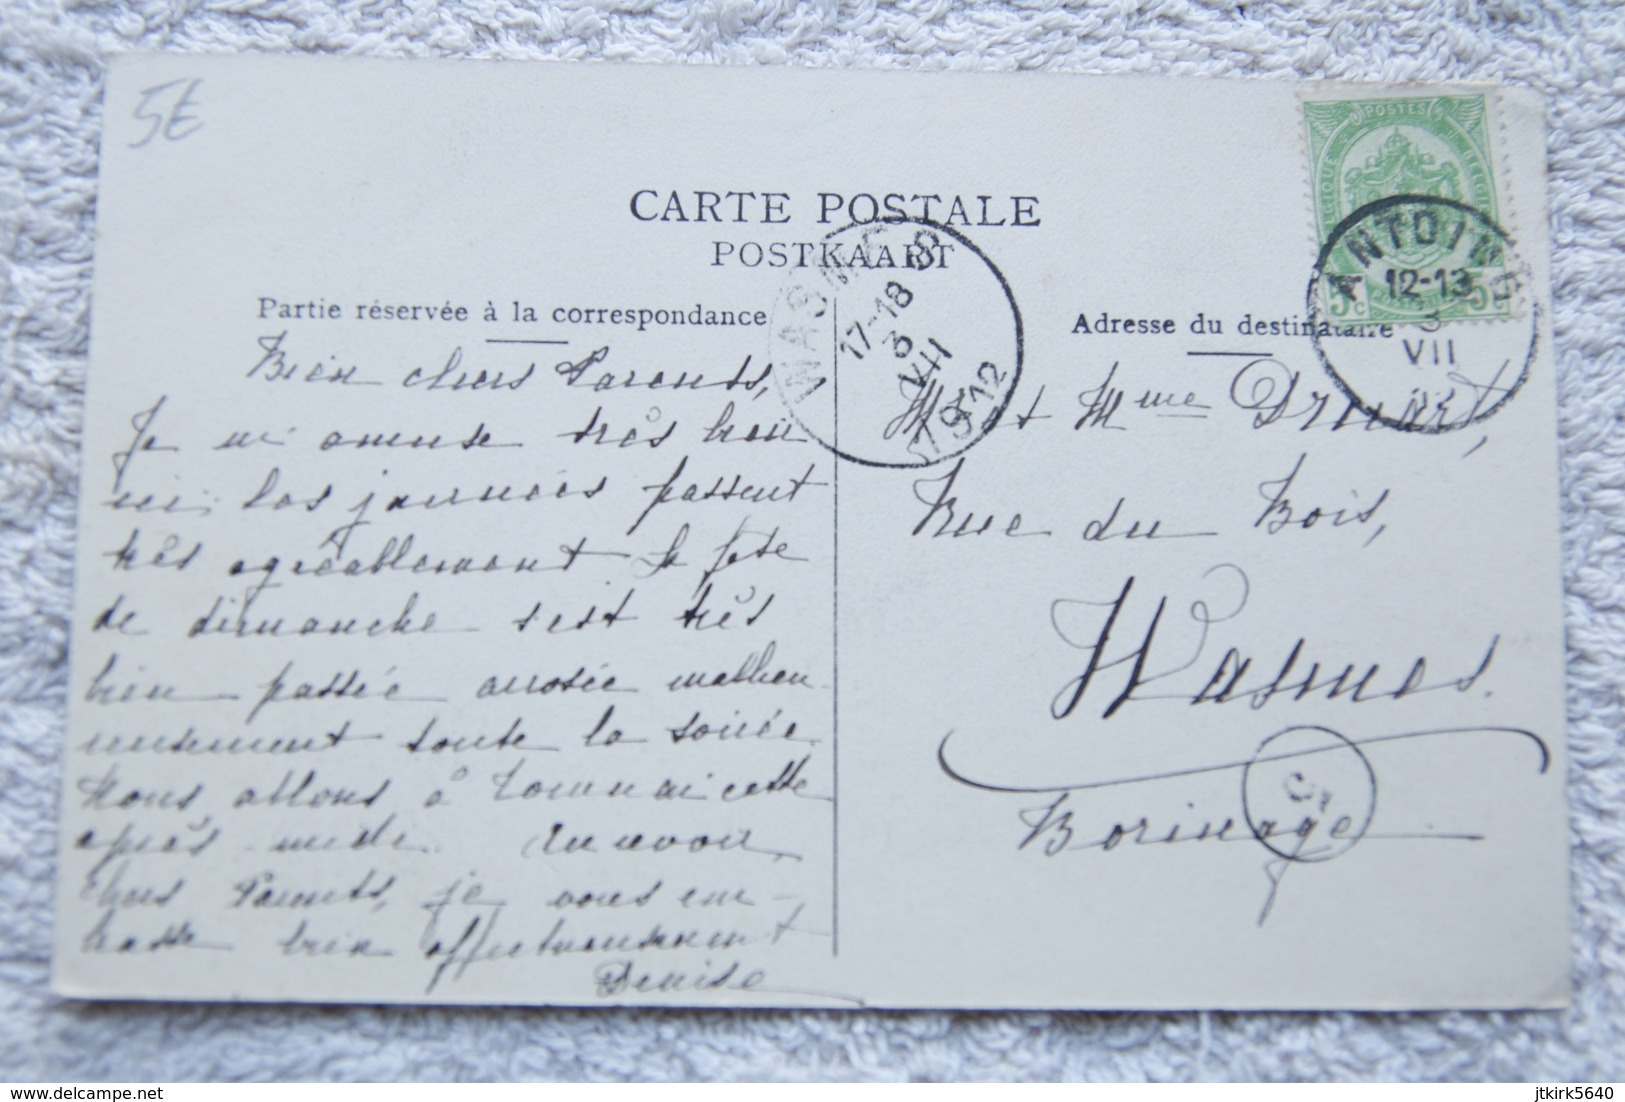 5€
CARTE POSTALE
POSTKAART
Partie réservée à la correspondance
Bien chers Parents,
Je m'amuse très bien
ici, les journées passent
très agréablement la fête
de dimanche s'est très
bien passée arrosée malheu
reusement toute la soirée.
Nous allons à Tournai cette
après midi. Au revoir,
chers Parents, je vous em-
brasse bien affectueusement
Denise
POSTES
5c 5c
ANTOING
12-13
3
VII
WASMES
17-18
3
VII
1912
Adresse du destinataire
Mr et Mme Druart,
Rue du Bois,
Wasmes.
Borinage
5
delcampe.net
jtkirk5640